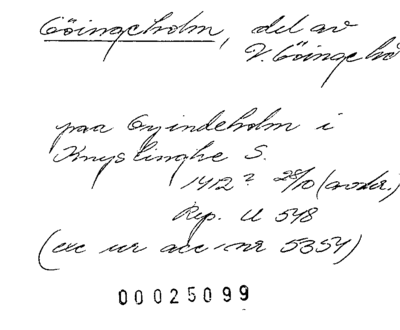 Göingeholm, del av
V. Göinge hd
paa Gyindeholm i
Knyslinghe S.
1412? 28/10 (avskr.)
Rep. U 548
(exc ur acc. nr 5354)
00025099